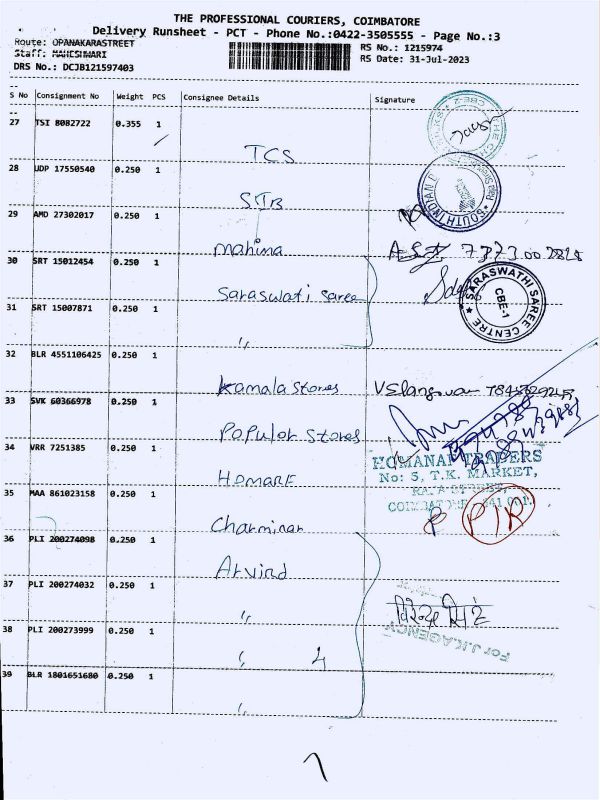 THE PROFESSIONAL COURIERS, COIMBATORE
Delivery Runsheet - PCT - Phone No.:0422-3505555 - Page No.:3
Route: OPANAKARASTREET
RS No.: 1215974
Staff: MAHESHWARI
RS Date: 31-Jul-2023
DRS No.: DCJB121597403
S No Consignment No Weight PCS Consignee Details Signature
27 TSI 8082722 0.355 1
TCS
28 UDP 17550540 0.250 1
STB
SOUTH INDIAN
29 AMD 27302017 0.250 1
Mahima
30 SRT 15012454 0.250 1
Saraswati Saree
SARASWATHI SAREE CENTRE
CBE-1
31 SRT 15007871 0.250 1
"
32 BLR 4551106425 0.250 1
Kamala Stores
33 SVK 60366978 0.250 1
Popular Stores
34 VRR 7251385 0.250 1
HOMANAI TRADERS
No: 5, T.K. MARKET,
COIMBATORE 641 001.
35 MAA 861023158 0.250 1
Charminar
P
36 PLI 200274098 0.250 1
Arvind
37 PLI 200274032 0.250 1
"
38 PLI 200273999 0.250 1
" 4
For J.K.AGENCY
39 BLR 1801651680 0.250 1
"